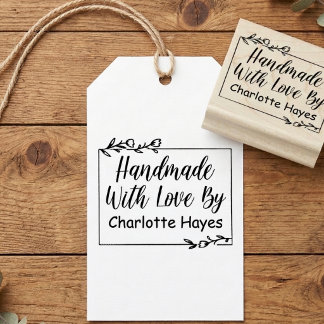 Handmade
With Love By
Charlotte Hayes
Handmade
With Love By
Charlotte Hayes